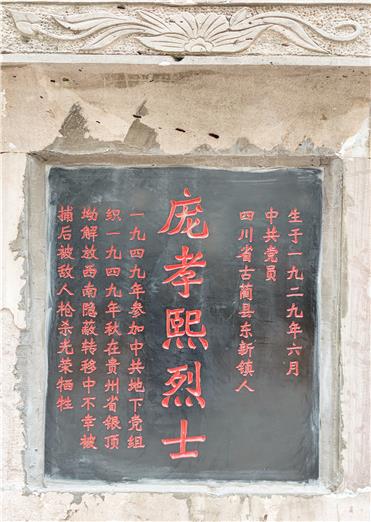 生于一九二九年六月
中共党员
四川省古蔺县东新镇人
庞孝熙烈士
一九四九年参加中共地下党组
织一九四九年秋在贵州省银顶
坳解放西南隐蔽转移中不幸被
捕后被敌人枪杀光荣牺牲